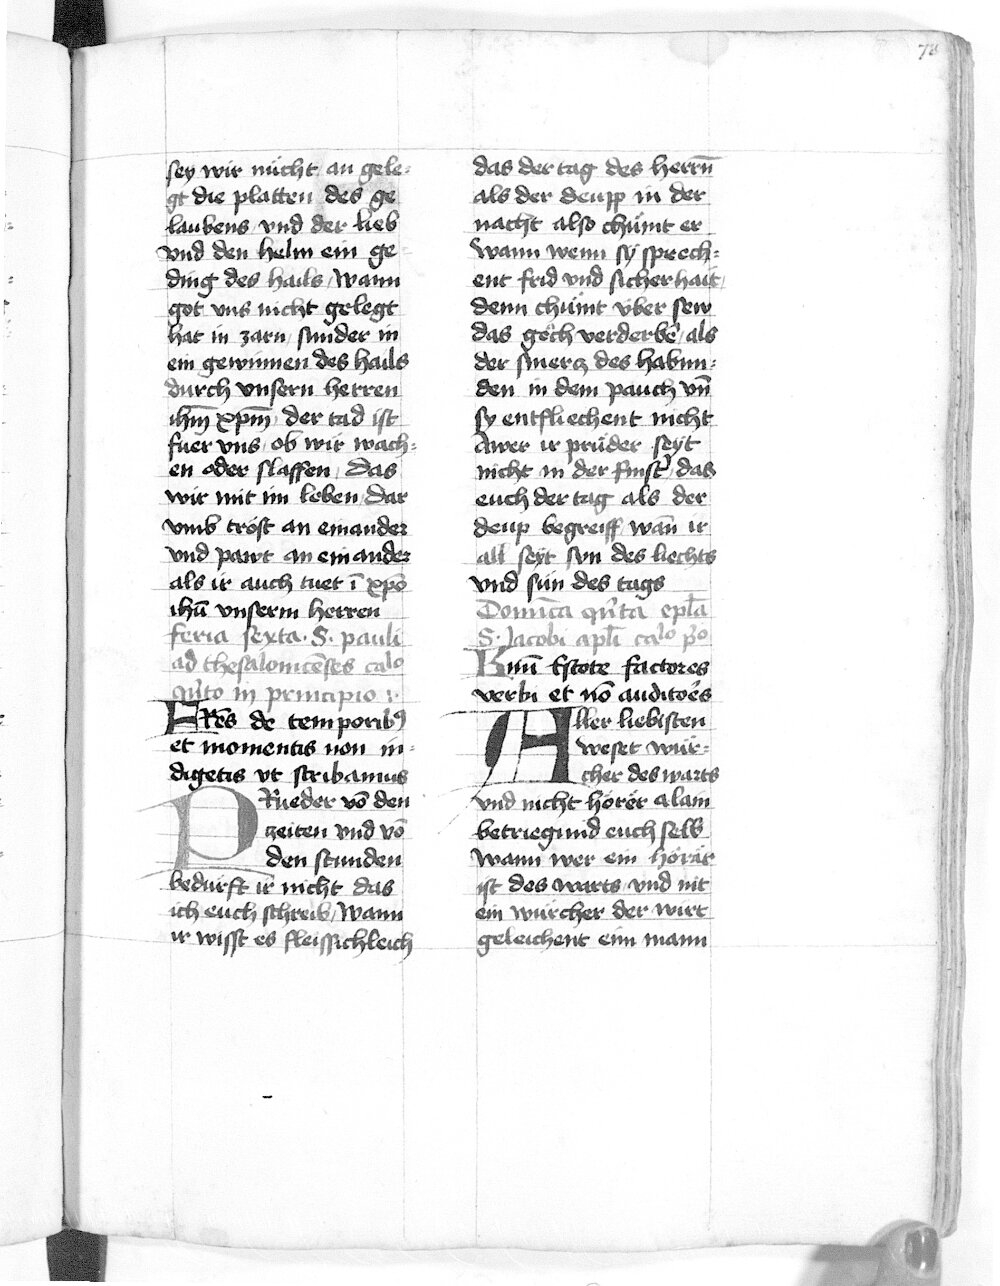 78
sey wir nücht an gele-
gt die platten des ge
laubens / vnd der lieb
vnd den helm ein ge
ding des hails / Wann
got vns nicht gelegt
hat in zarn / sunder in
ein gewinnen des hails
durch vnsern herren
ihm̄ xpm̄ / der tad ist
fuer vns / ob wir wach-
en oder slaffen / das
wir mit im leben / Dar
vmb tröst an einander
vnd pawt an ein ander
als ir auch tuet ī xpō
ihū vnserm herren
feria sexta · S · pauli
ad thesalonicēses calo
qn̄to in principio
FRēs de temporibꝰ
et momentis non in-
digetis vt scribamus
PRueder vō den
zeiten vnd vō
den stunden
bedurft ir nicht das
ich euch schreib / Wann
ir wisst es fleissichleich
das der tag des herrn̄
als der deupp in der
nacht also chümt er
Wann wenn sy sprech-
ent frid vnd sicherhait /
denn chümt vber sew
das gëch verderbē / als
der smercz des habnn-
den in dem pauch vn̄
sy entfliechent nicht
Awer ir prüder seyt
nicht in der finst̄ / das
euch der tag als der
deup begreiff / wan̄ ir
all seyt sün des liechts
vnd sün des tags
Domīca qn̄ta epl̄a
S · Jacobi apl̄i calo p̄o
Kmi Estote factores
verbi et nō auditoēs
Aller liebisten
weset wür-
cher des warts
vnd nicht hörër alain
betriegund euch selb
Wann wer ein hörär
ist des warts / vnd nit
ein würcher der wirt
geleichent eim mann